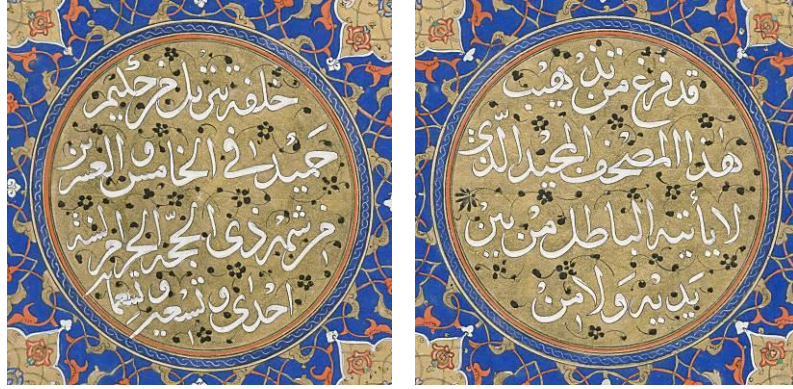 قد فرغ من تذهيب
هذا المصحف المجيد الذي
لا يأتيه الباطل من بين
يديه ولا من
خلفه تنزيل من حكيم
حميد في الخامس والعشرين
من شهر ذي الحجة الحرام لسنة
احدى وتسعين وتسعما